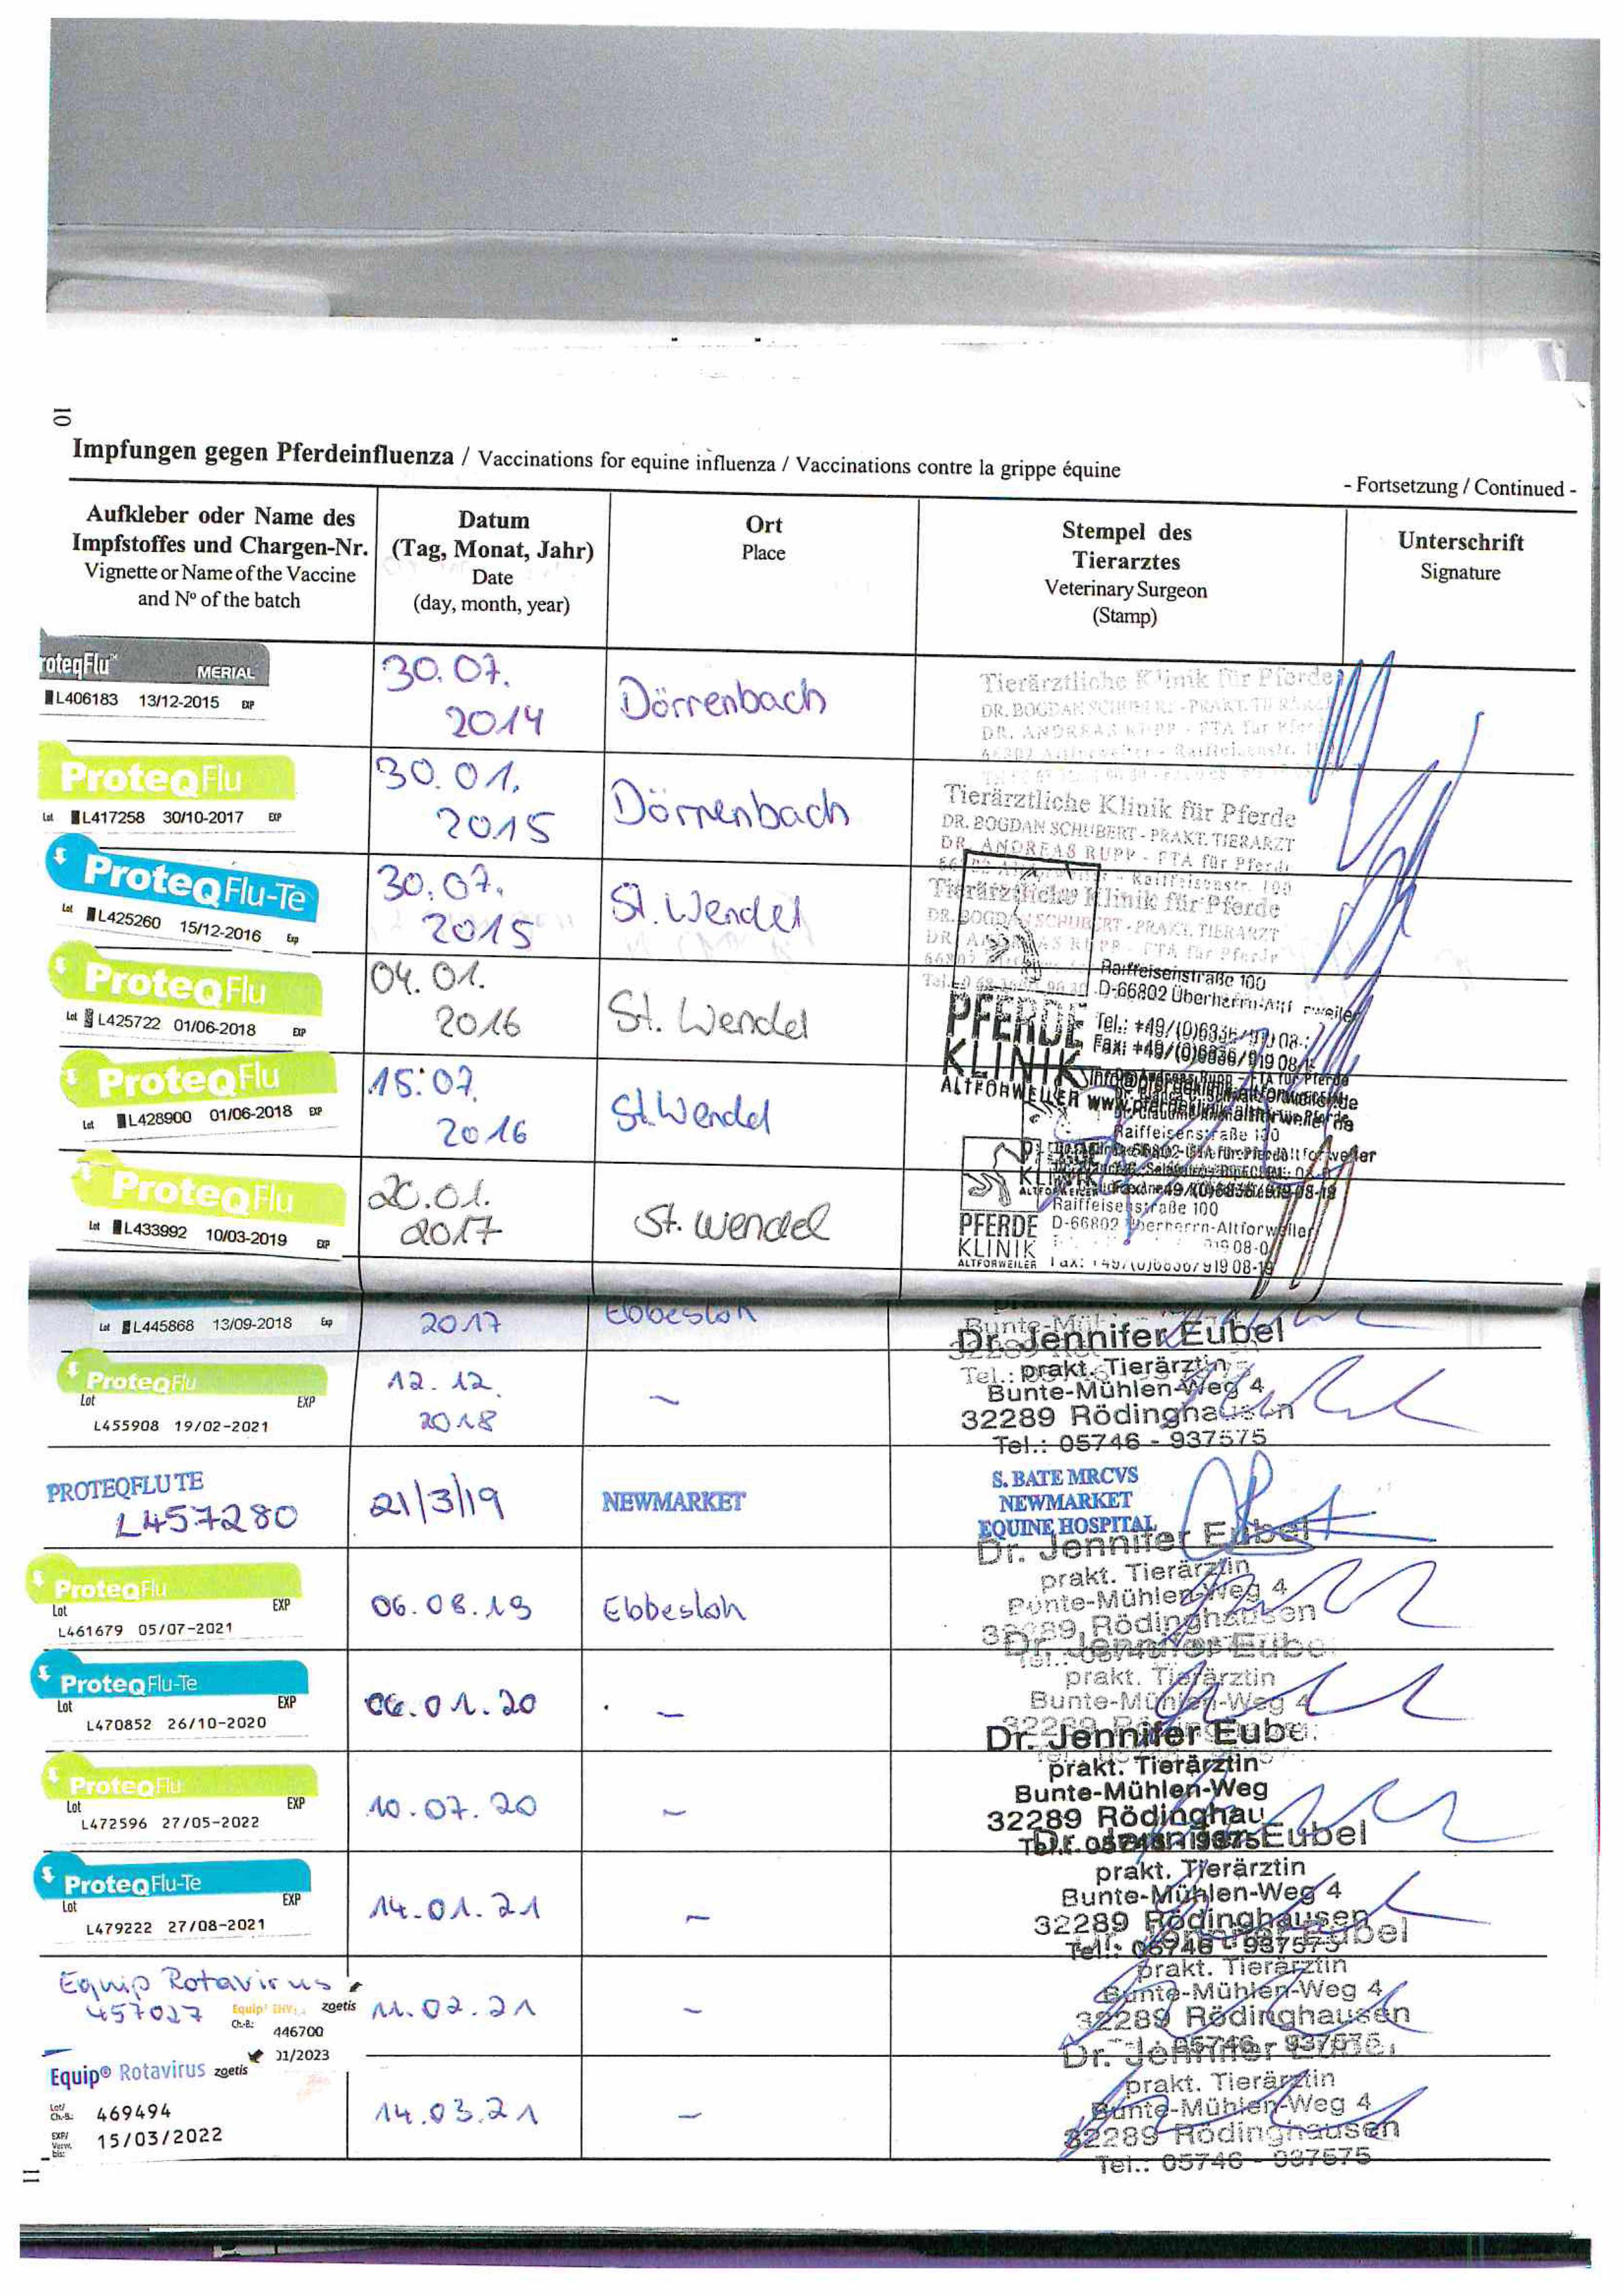 10
Impfungen gegen Pferdeinfluenza / Vaccinations for equine influenza / Vaccinations contre la grippe équine
- Fortsetzung / Continued -
Aufkleber oder Name des
Impfstoffes und Chargen-Nr.
Vignette or Name of the Vaccine
and Nº of the batch
Datum
(Tag, Monat, Jahr)
Date
(day, month, year)
Ort
Place
Stempel des
Tierarztes
Veterinary Surgeon
(Stamp)
Unterschrift
Signature
roteqFlu™ MERIAL
L406183 13/12-2015 EXP
30.07.
2014
Dörrenbach
Tierärztliche Klinik für Pferde
ProteqFlu
Lot L417258 30/10-2017 EXP
30.01.
2015
Dörrenbach
Tierärztliche Klinik für Pferde
DR. BOGDAN SCHUBERT - PRAKT. TIERARZT
DR. ANDREAS RUPP - FTA für Pferde
ProteqFlu-Te
Lot L425260 15/12-2016 Exp
30.07.
2015
St. Wendel
Tierärztliche Klinik für Pferde
DR. BOGDAN SCHUBERT - PRAKT. TIERARZT
ProteqFlu
Lot L425722 01/06-2018 EXP
04.01.
2016
St. Wendel
Raiffeisenstraße 100
D-66802 Überherrn-Altforweiler
PFERDE
KLINIK
ALTFORWEILER
ProteqFlu
Lot L428900 01/06-2018 EXP
15.07.
2016
St. Wendel
Raiffeisenstraße 100
ProteqFlu
Lot L433992 10/03-2019 EXP
20.01.
2017
St. Wendel
PFERDE
KLINIK
ALTFORWEILER
Raiffeisenstraße 100
D-66802 Überherrn-Altforweiler
Lot L445868 13/09-2018 Exp
2017
Ebbesloh
ProteqFlu
Lot EXP
L455908 19/02-2021
12.12.
2018
–
Dr. Jennifer Eubel
prakt. Tierärztin
Bunte-Mühlen-Weg 4
32289 Rödinghausen
Tel.: 05746 - 937575
PROTEQFLU TE
L457280
21/3/19
NEWMARKET
S. BATE MRCVS
NEWMARKET
EQUINE HOSPITAL
ProteqFlu
Lot EXP
L461679 05/07-2021
06.08.19
Ebbesloh
Dr. Jennifer Eubel
prakt. Tierärztin
Bunte-Mühlen-Weg 4
32289 Rödinghausen
ProteqFlu-Te
Lot EXP
L470852 26/10-2020
06.01.20
–
Dr. Jennifer Eubel
prakt. Tierärztin
Bunte-Mühlen-Weg 4
ProteqFlu
Lot EXP
L472596 27/05-2022
10.07.20
–
Dr. Jennifer Eube
prakt. Tierärztin
Bunte-Mühlen-Weg
32289 Rödinghau
ProteqFlu-Te
Lot EXP
L479222 27/08-2021
14.01.21
–
Dr. Jennifer Eubel
prakt. Tierärztin
Bunte-Mühlen-Weg 4
32289 Rödinghausen
Tel.: 05746 - 937575
Equip Rotavirus
457027
Equip® EHV1,4 zoetis
Ch.-B.: 446700
01/2023
11.02.21
–
prakt. Tierärztin
Bunte-Mühlen-Weg 4
32289 Rödinghausen
Equip® Rotavirus zoetis
Lot/
Ch.-B.: 469494
EXP/
Verw.
bis: 15/03/2022
14.03.21
–
Dr. Jennifer
prakt. Tierärztin
Bunte-Mühlen-Weg 4
32289 Rödinghausen
Tel.: 05746 - 937575
11